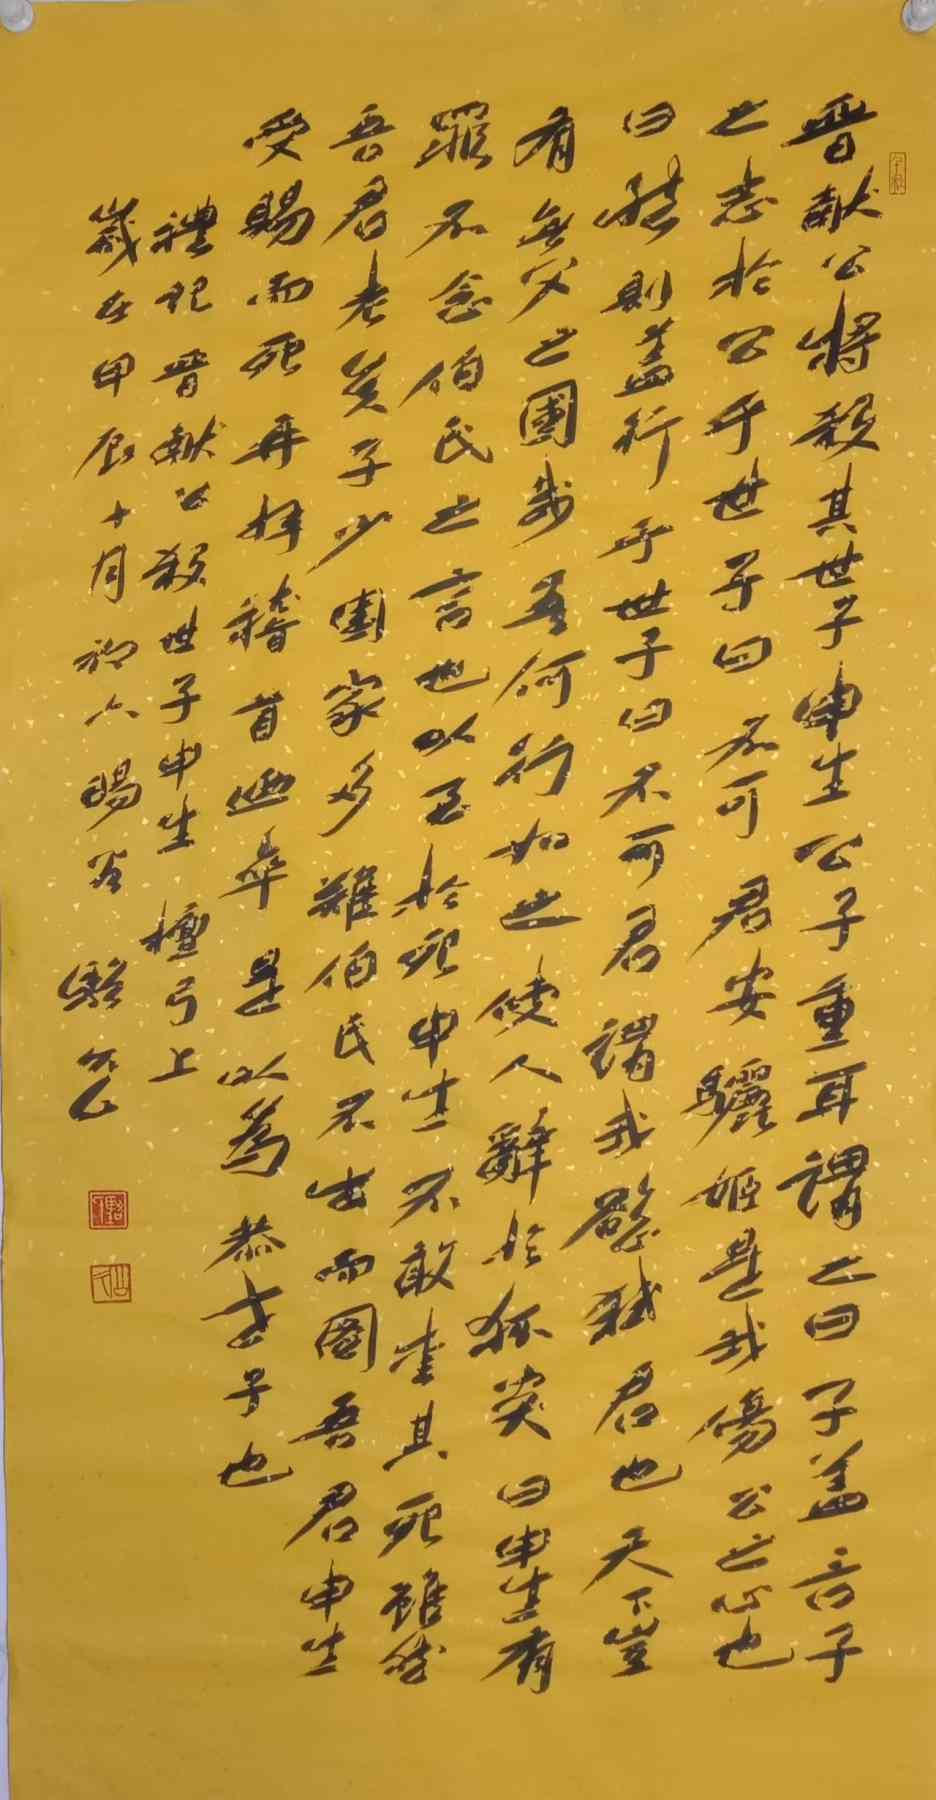 晋献公將殺其世子申生公子重耳謂之曰子盖言子
之志於公乎世子曰不可君安驪姬是我傷公之心也
曰然則盖行乎世子曰不可君謂我欲弒君也天下豈
有無父之國哉吾何行如之使人辭於狐突曰申生有
罪不念伯氏之言也以至於死申生不敢愛其死雖然
吾君老矣子少國家多難伯氏不出而圖吾君申生
受賜而死再拜稽首乃卒是以為恭世子也
禮記晋献公殺世子申生 檀弓上
歲在甲辰十月初六